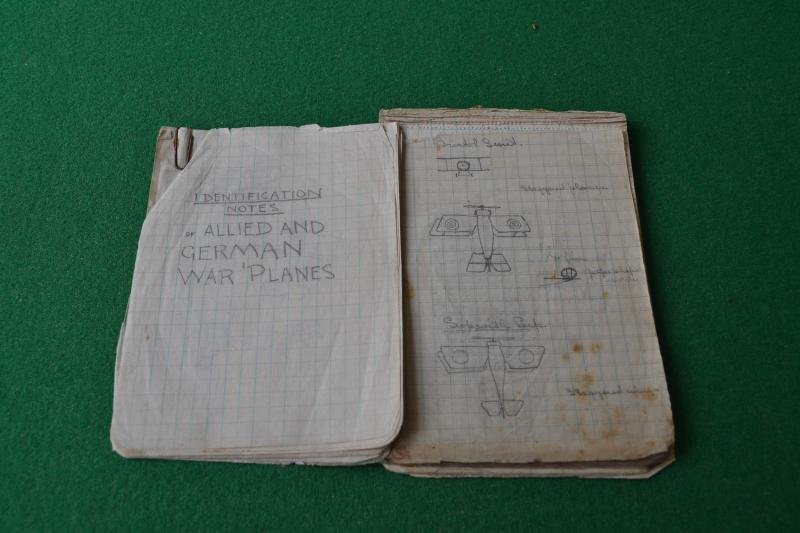 IDENTIFICATION
NOTES
OF ALLIED AND
GERMAN
WAR 'PLANES
Bristol Scout.
Staggered planes
Sopwith Pup.
Staggered